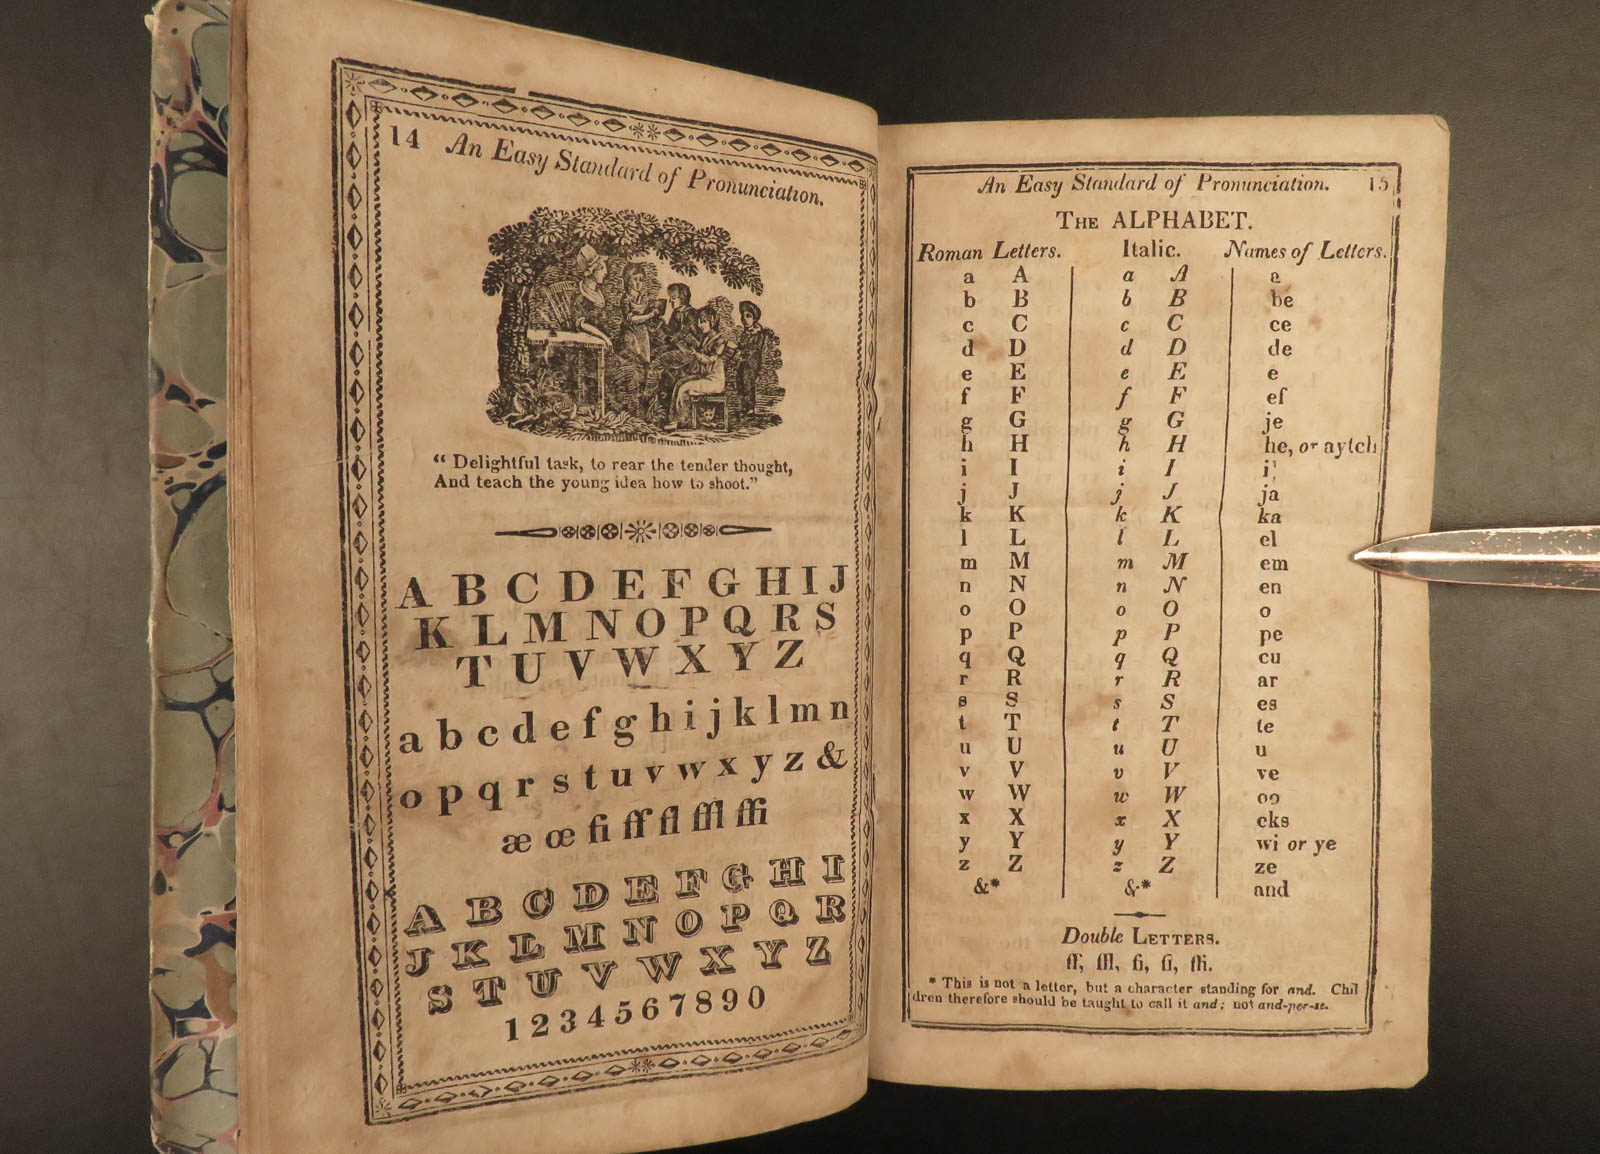 14 An Easy Standard of Pronunciation.
“ Delightful task, to rear the tender thought,
And teach the young idea how to shoot.”
A B C D E F G H I J
K L M N O P Q R S
T U V W X Y Z
a b c d e f g h i j k l m n
o p q r s t u v w x y z &
æ œ fi ff fl ffl ffi
A B C D E F G H I
J K L M N O P Q R
S T U V W X Y Z
1 2 3 4 5 6 7 8 9 0
An Easy Standard of Pronunciation. 15
THE ALPHABET.
Roman Letters. Italic. Names of Letters.
a A a A a
b B b B be
c C c C ce
d D d D de
e E e E e
f F f F ef
g G g G je
h H h H he, or aytch
i I i I i
j J j J ja
k K k K ka
l L l L el
m M m M em
n N n N en
o O o O o
p P p P pe
q Q q Q cu
r R r R ar
s S s S es
t T t T te
u U u U u
v V v V ve
w W w W oo
x X x X cks
y Y y Y wi or ye
z Z z Z ze
&* &* and
Double LETTERS.
* This is not a letter, but a character standing for and. Chil
dren therefore should be taught to call it and; not and-per-se.